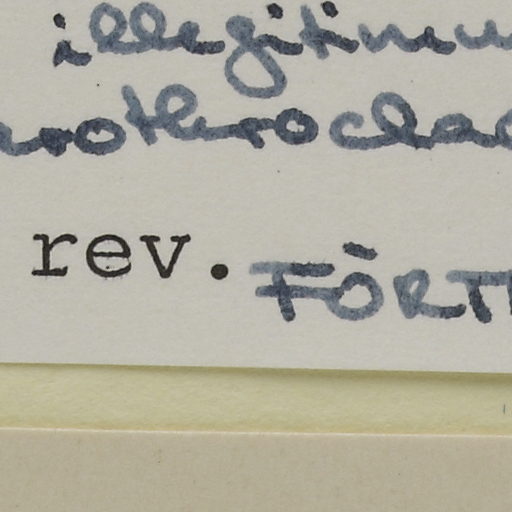 illegitim
rothroclad
rev. FÖRTH